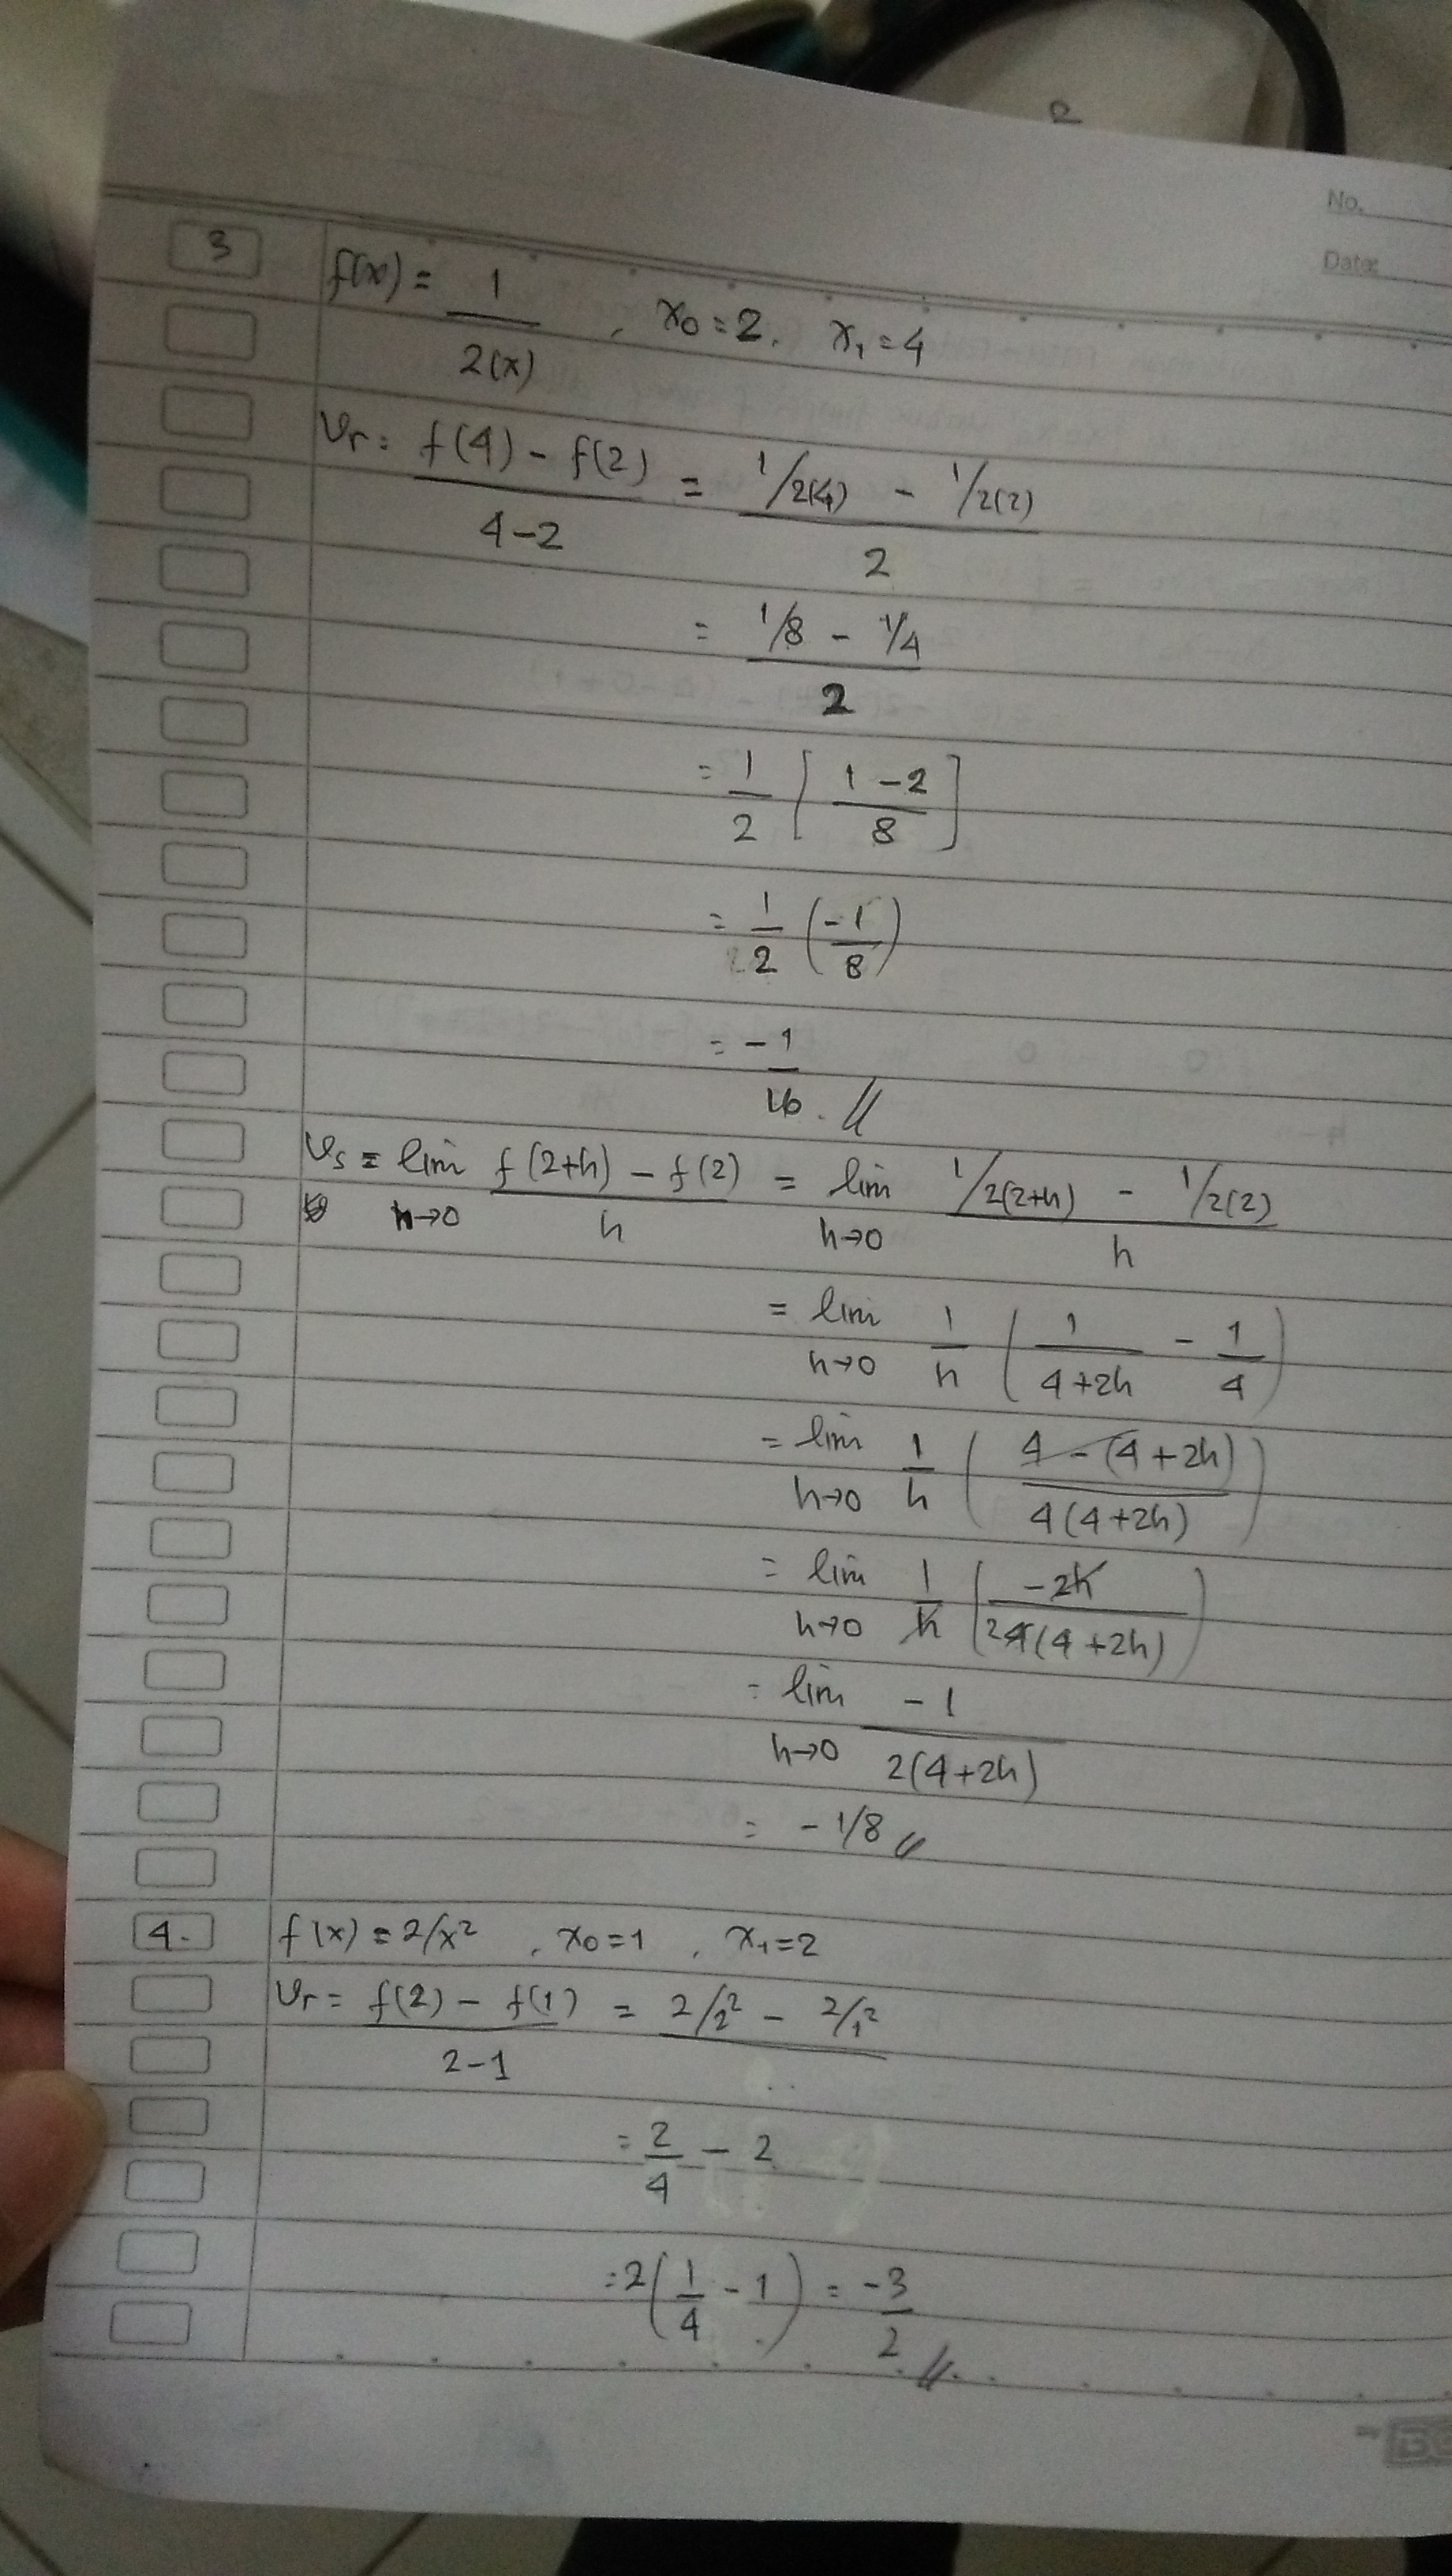 No.
Date:
3 f(x) = 1 / 2(x) , x₀ = 2, x₁ = 4
Vr = f(4) - f(2) / 4-2 = 1/2(4) - 1/2(2) / 2
= 1/8 - 1/4 / 2
= 1/2 [ 1-2 / 8 ]
= 1/2 ( -1/8 )
= -1/16 . //
Vs = lim h→0 f(2+h) - f(2) / h = lim h→0 1/2(2+h) - 1/2(2) / h
= lim h→0 1/h ( 1/4+2h - 1/4 )
= lim h→0 1/h ( 4-(4+2h) / 4(4+2h) )
= lim h→0 1/h ( -2h / 24(4+2h) )
= lim h→0 -1 / 2(4+2h)
= -1/8 //
4. f(x) = 2/x² , x₀ = 1 , x₁ = 2
Vr = f(2) - f(1) / 2-1 = 2/2² - 2/1²
= 2/4 - 2
= 2( 1/4 - 1 ) = -3/2 //